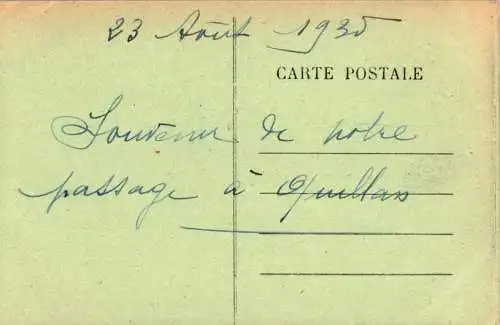 23 Août 1935
CARTE POSTALE
Souvenir de notre
passage à Quillan